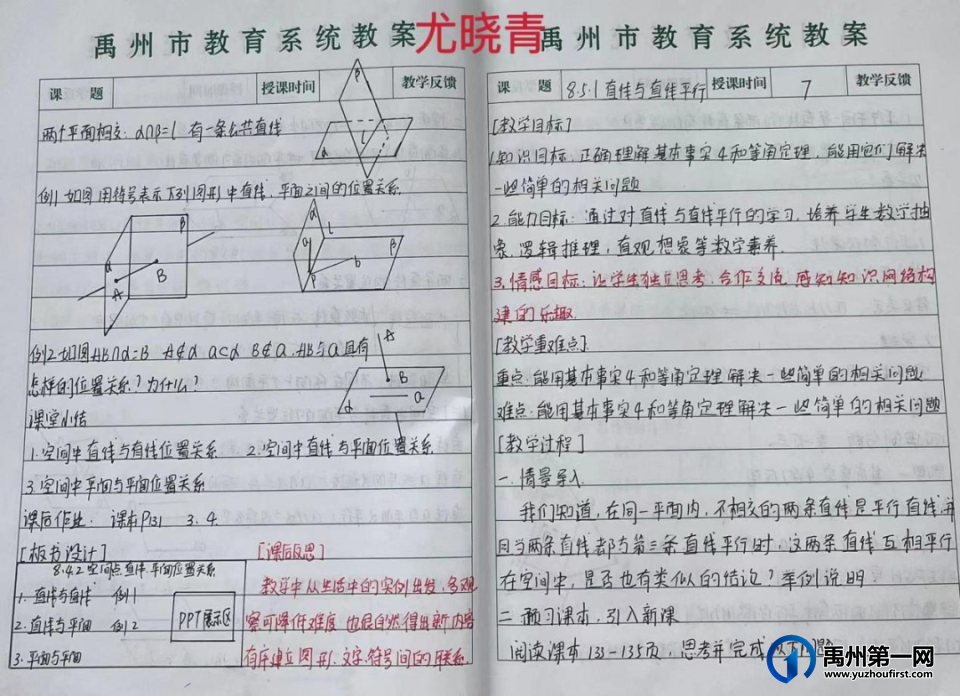 禹州市教育系统教案
尤晓青
课题
授课时间
教学反馈
两个平面相交: α∩β=l 有一条公共直线
β
l
α
例1 如图用符号表示下列图形中直线、平面之间的位置关系
β
α
B
A
l
α
β
a
b
P
例2 如图 AB∩α=B A∉α a⊂α B∉a. AB与a具有
怎样的位置关系? 为什么?
A
B
a
α
课堂小结
1. 空间中直线与直线位置关系 2. 空间中直线与平面位置关系
3. 空间中平面与平面位置关系
课后作业: 课本P131 3. 4.
[板书设计]
8.4.2空间点直线.平面位置关系
1. 直线与直线 例1
2. 直线与平面 例2
3. 平面与平面
PPT展示区
[课后反思]
教学中从生活中的实例出发,多观
察可降低难度 也很自然得出新内容
有序建立图形.文字.符号间的联系.
禹州市教育系统教案
课题
8.5.1直线与直线平行
授课时间
7
教学反馈
[教学目标]
1.知识目标: 正确理解基本事实4和等角定理, 能用它们解决
一些简单的相关问题
2. 能力目标: 通过对直线与直线平行的学习. 培养学生数学抽
象、逻辑推理, 直观想象等数学素养.
3. 情感目标: 让学生独立思考、合作交流, 感知知识网络构
建的乐趣.
[教学重难点].
重点: 能用基本事实4和等角定理解决一些简单的相关问题
难点: 能用基本事实4和等角定理解决一些简单的相关问题
[教学过程]
一. 情景导入
我们知道, 在同一平面内, 不相交的两条直线是平行直线, 并
且当两条直线都与第三条直线平行时, 这两条直线互相平行
在空间中, 是否也有类似的结论? 举例说明
二 预习课本, 引入新课
阅读课本133-135页, 思考并完成以下问题
禹州第一网
www.yuzhoufirst.com